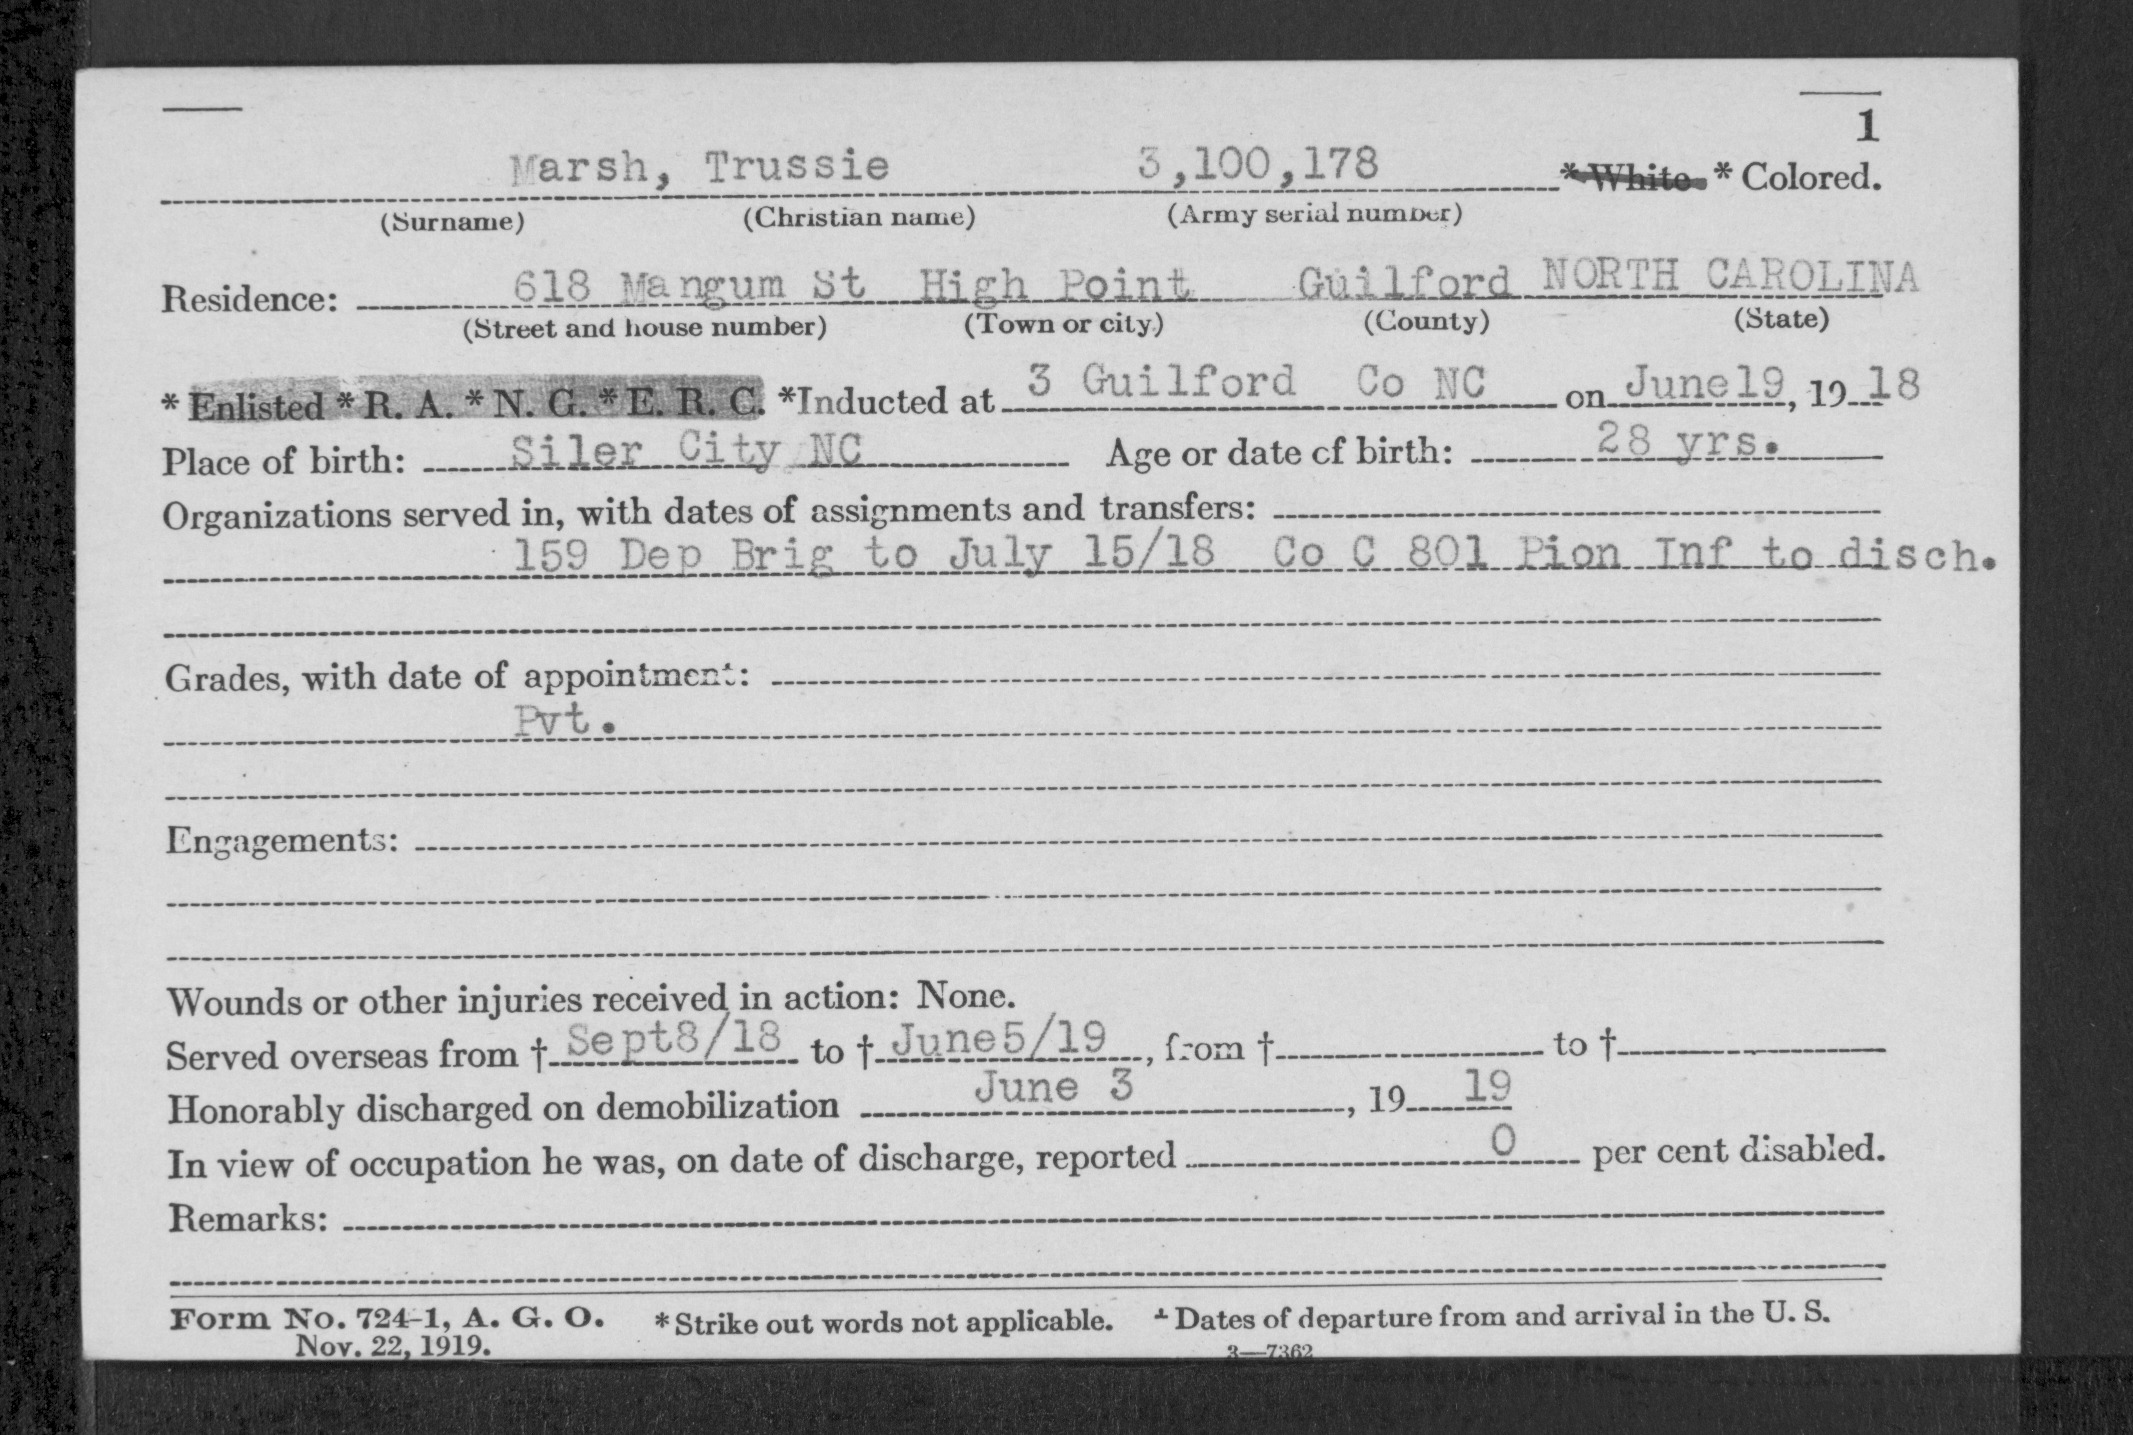 1
Marsh, Trussie 3,100,178 * White * Colored.
(Surname) (Christian name) (Army serial number)
Residence: 618 Mangum St High Point Guilford NORTH CAROLINA
(Street and house number) (Town or city) (County) (State)
* Enlisted * R. A. * N. G. * E. R. C. *Inducted at 3 Guilford Co NC on June19, 19 18
Place of birth: Siler City NC Age or date of birth: 28 yrs.
Organizations served in, with dates of assignments and transfers:
159 Dep Brig to July 15/18 Co C 801 Pion Inf to disch.
Grades, with date of appointment:
Pvt.
Engagements:
Wounds or other injuries received in action: None.
Served overseas from † Sept8/18 to † June5/19, from † to †
Honorably discharged on demobilization June 3, 19 19
In view of occupation he was, on date of discharge, reported 0 per cent disabled.
Remarks:
Form No. 724-1, A. G. O. * Strike out words not applicable. † Dates of departure from and arrival in the U. S.
Nov. 22, 1919. 3—7362